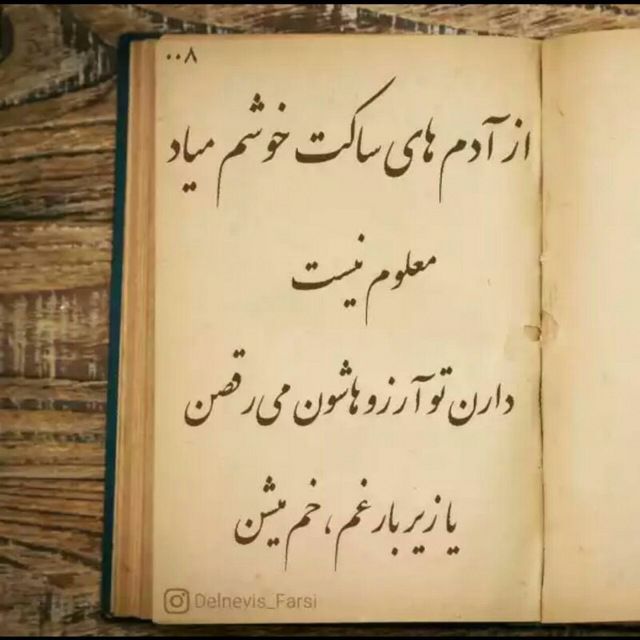 ۰۰۸
از آدم های ساکت خوشم میاد
معلوم نیست
دارن تو آرزوهاشون می رقصن
یا زیر بار غم ، خم میشن
Delnevis_Farsi